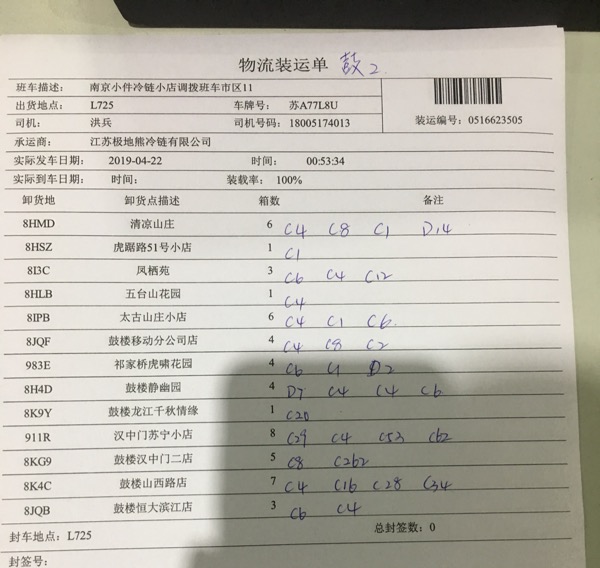 物流装运单 鼓2
班车描述: 南京小件冷链小店调拨班车市区11
出货地点: L725 车牌号: 苏A77L8U
司机: 洪兵 司机号码: 18005174013 装运编号: 0516623505
承运商: 江苏极地熊冷链有限公司
实际发车日期: 2019-04-22 时间: 00:53:34
实际到车日期: 时间: 装载率: 100%
卸货地 卸货点描述 箱数 备注
8HMD 清凉山庄 6 C4 C8 C1 D14
8HSZ 虎踞路51号小店 1 C1
8I3C 凤栖苑 3 C6 C4 C12
8HLB 五台山花园 1 C4
8IPB 太古山庄小店 6 C4 C1 C6
8JQF 鼓楼移动分公司店 4 C4 C8 C2
983E 祁家桥虎啸花园 4 C6 C1 D2
8H4D 鼓楼静幽园 4 D7 C4 C4 C6
8K9Y 鼓楼龙江千秋情缘 1 C20
911R 汉中门苏宁小店 8 C29 C4 C53 C62
8KG9 鼓楼汉中门二店 5 C8 C262
8K4C 鼓楼山西路店 7 C4 C16 C28 C34
8JQB 鼓楼恒大滨江店 3 C6 C4
封车地点: L725 总封签数: 0
封签号: